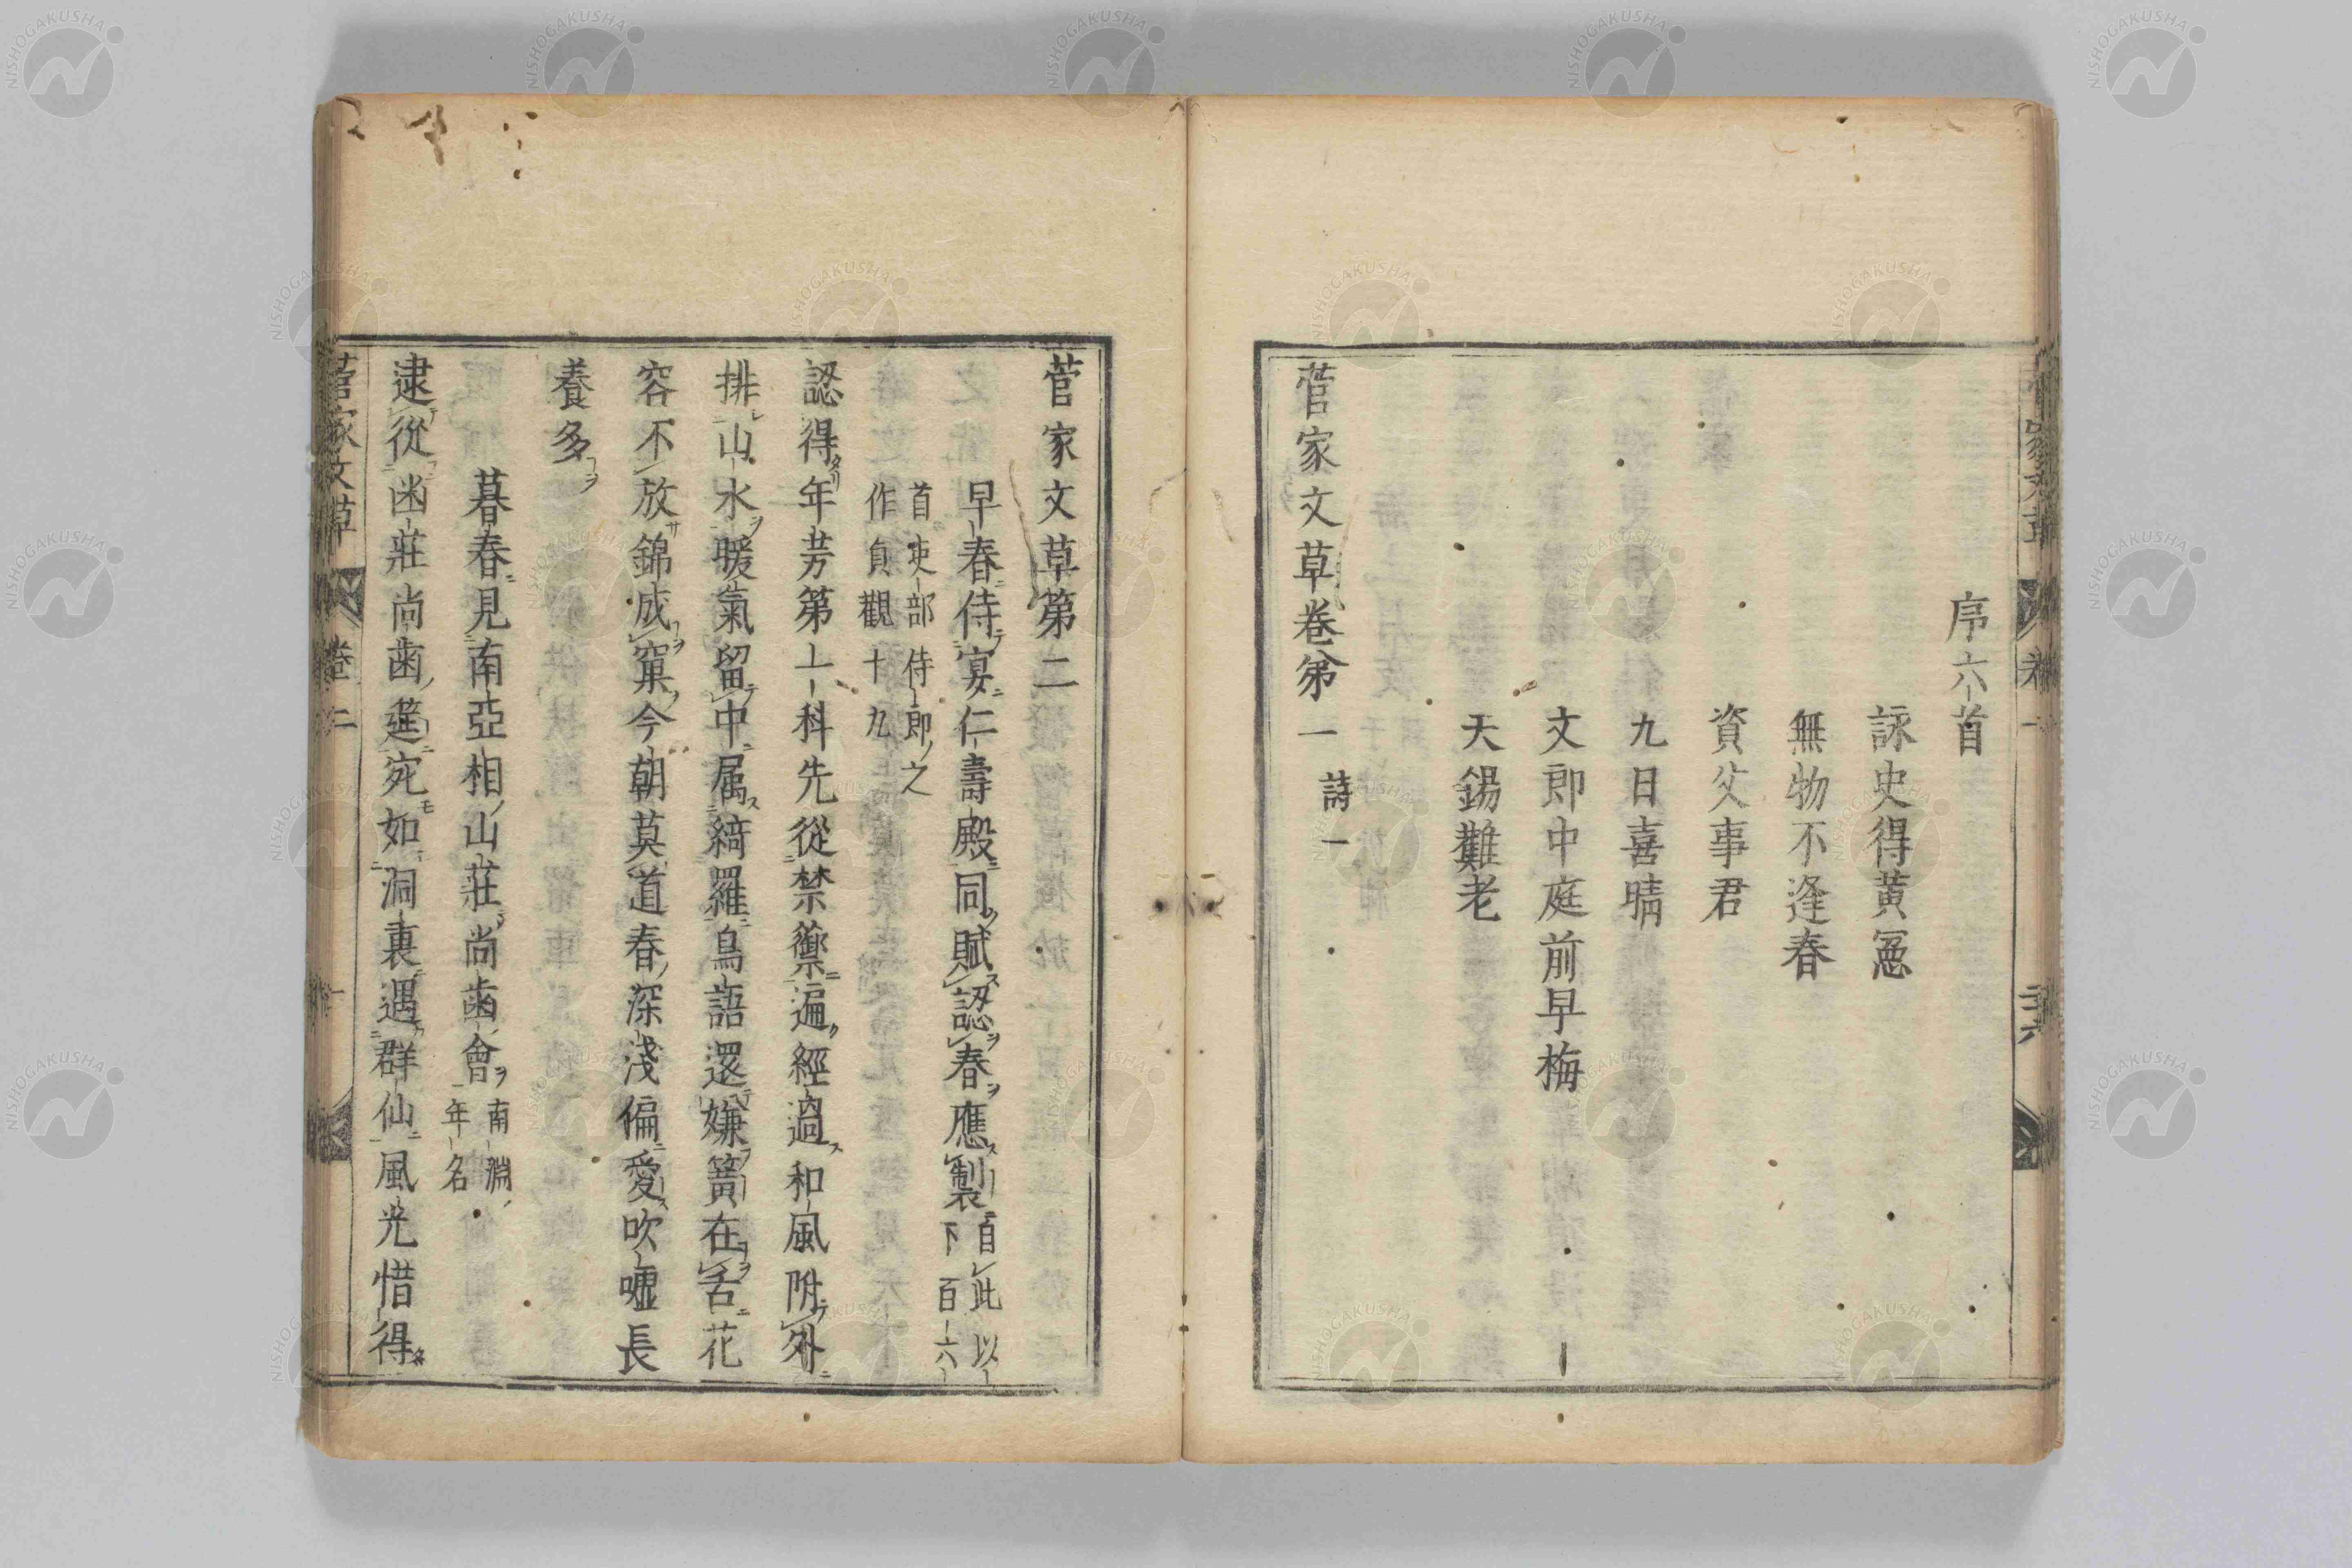 序六首
詠史得黄憲
無物不逢春
資父事君
九日喜晴
文郎中庭前早梅
天錫難老
菅家文草卷第一 詩一
菅家文草第二
早春侍宴仁壽殿同賦認春應製 自此以下百六
首吏部侍郎之
作員觀十九
認得年芳第一科先從禁籞遍經過和風附外
排山水暖氣留中属綺羅鳥語還嫌簧在舌花
容不放錦成窠今朝莫道春深淺偏愛吹噓長
養多
暮春見南亞相山莊尚齒會 南淵年名
逮從幽莊尚齒筵宛如洞裏遇群仙風光惜得
菅家文草 卷二 一
NISHOGAKUSHA